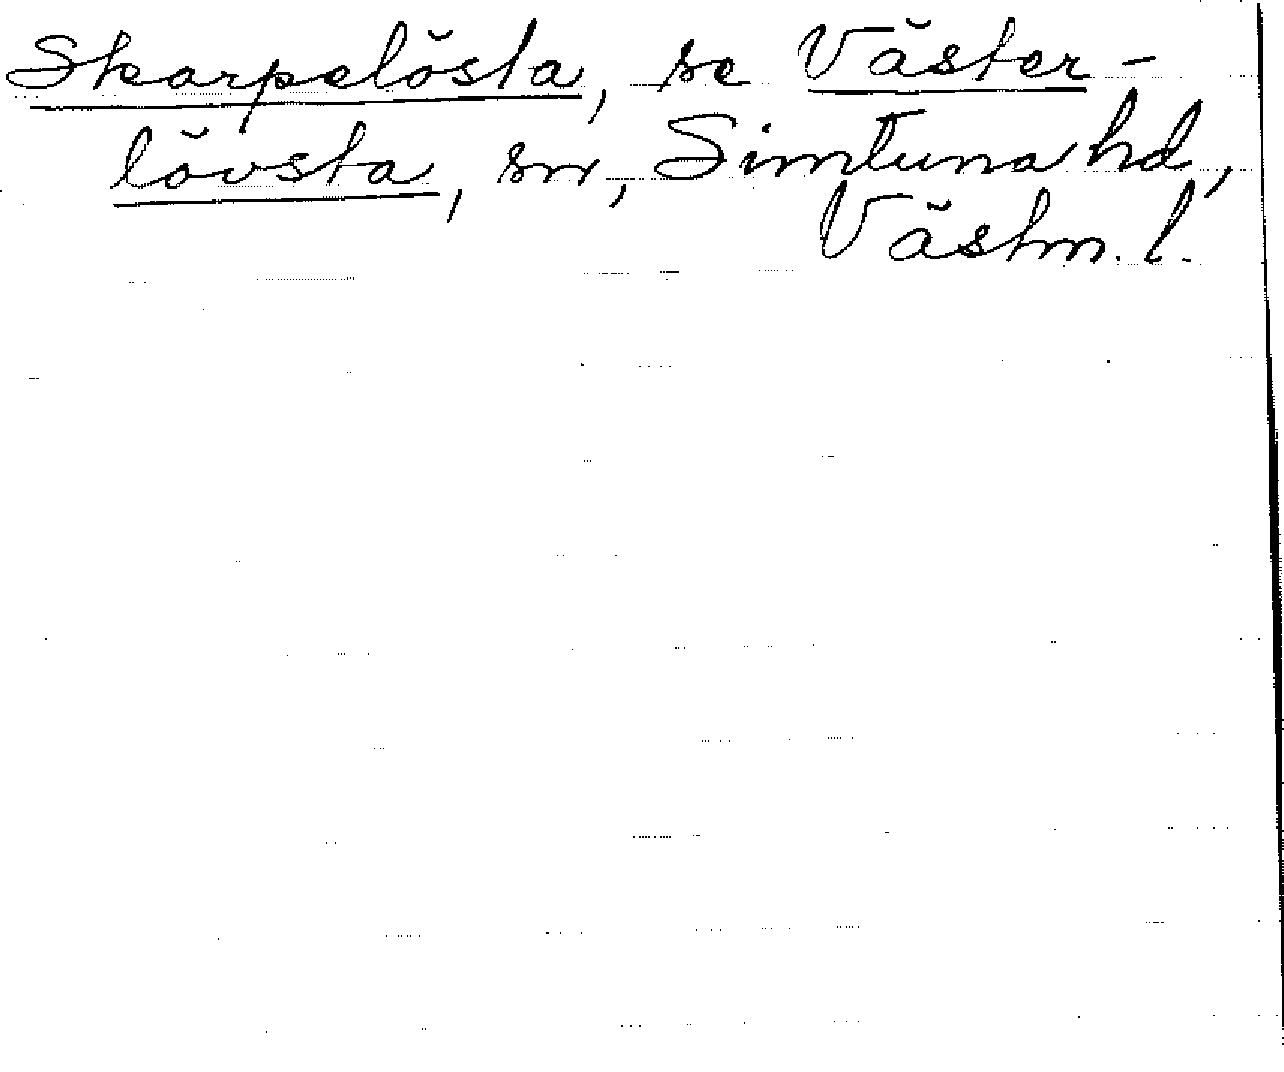 Skarpelösta, se Väster-
lövsta, sn, Simtuna hd,
Västm. l.